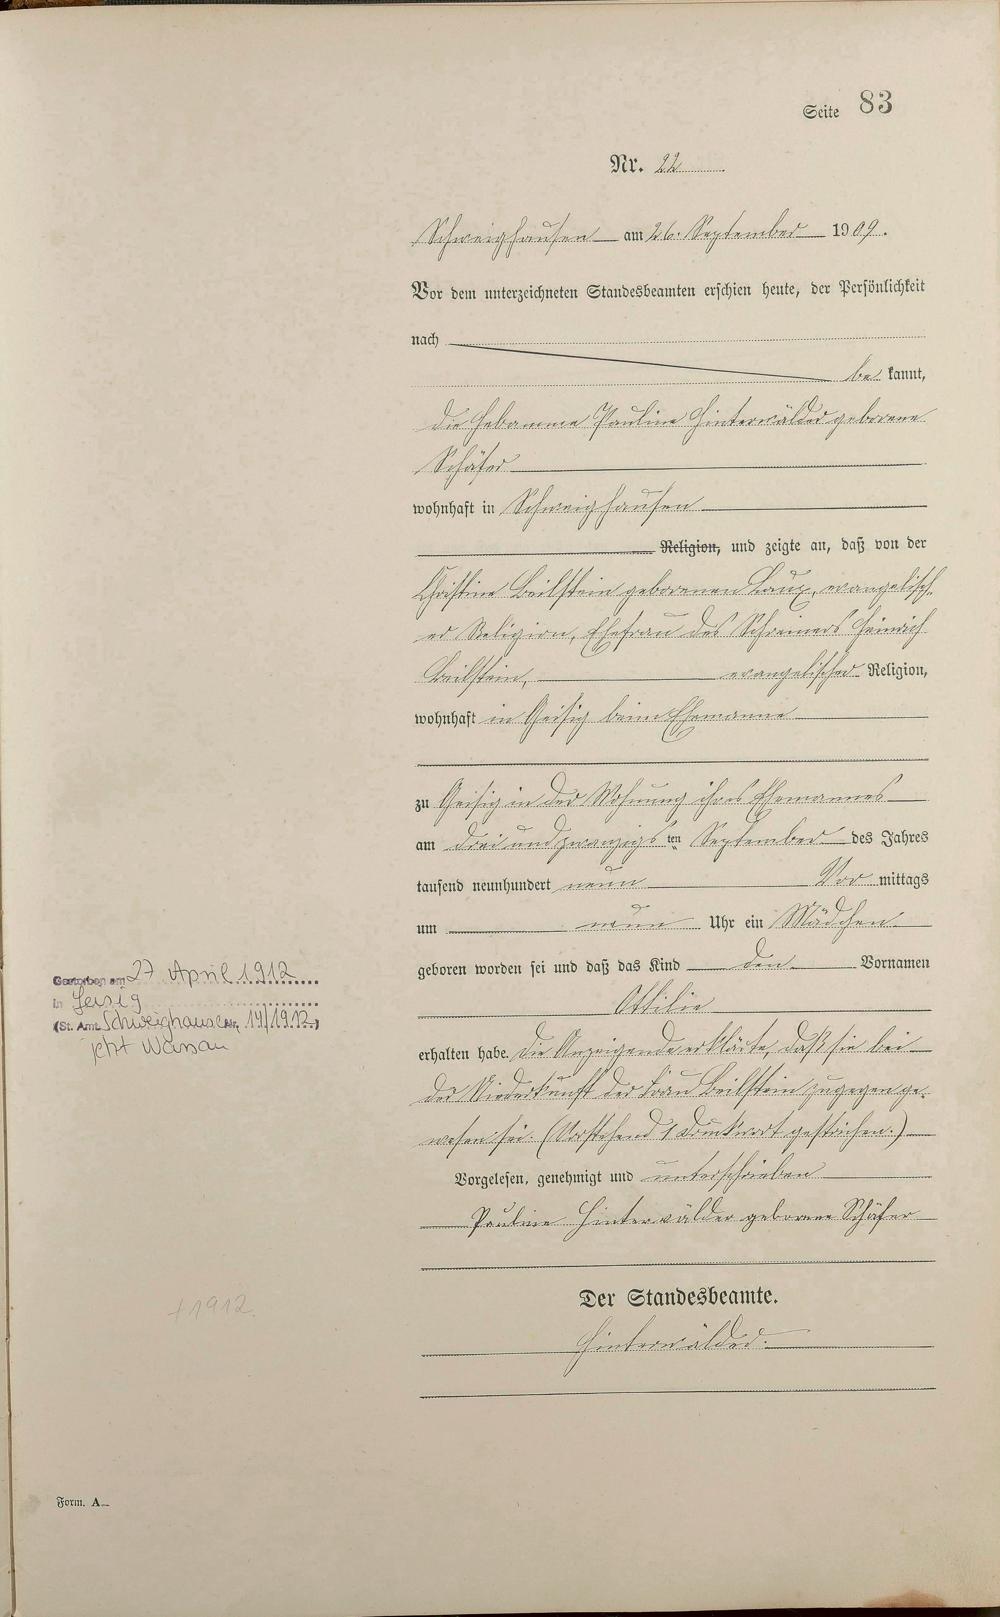 Seite 83
Nr. 22
Schweighausen am 26. September 1909.
Vor dem unterzeichneten Standesbeamten erschien heute, der Persönlichkeit
nach
be kannt,
die Hebamme Pauline Hinterwälder geborene
Schäfer
wohnhaft in Schweighausen
Religion, und zeigte an, daß von der
Christine Beilstein geborenen Laux, evangelisch-
er Religion, Ehefrau des Schreiners Heinrich
Beilstein, evangelischer Religion,
wohnhaft in Geisig beim Ehemanne
zu Geisig in der Wohnung ihres Ehemannes
am drei und zwanzigs ten September des Jahres
tausend neunhundert neun Vor mittags
um neun Uhr ein Mädchen
geboren worden sei und daß das Kind den Vornamen
Ottilie
erhalten habe. Die Anzeigende erklärte, daß sie bei
der Niederkunft der Frau Beilstein zugegen ge-
wesen sei. (Vorstehend 1 Druckwort gestrichen.)
Vorgelesen, genehmigt und unterschrieben
Pauline Hinterwälder geborene Schäfer
Der Standesbeamte.
Hinterwälder.
Gestorben am 27 April 1912
in Geisig
(St. Amt Schweighausen Nr. 14/1912)
jetzt Nassau
+1912.
Form. A